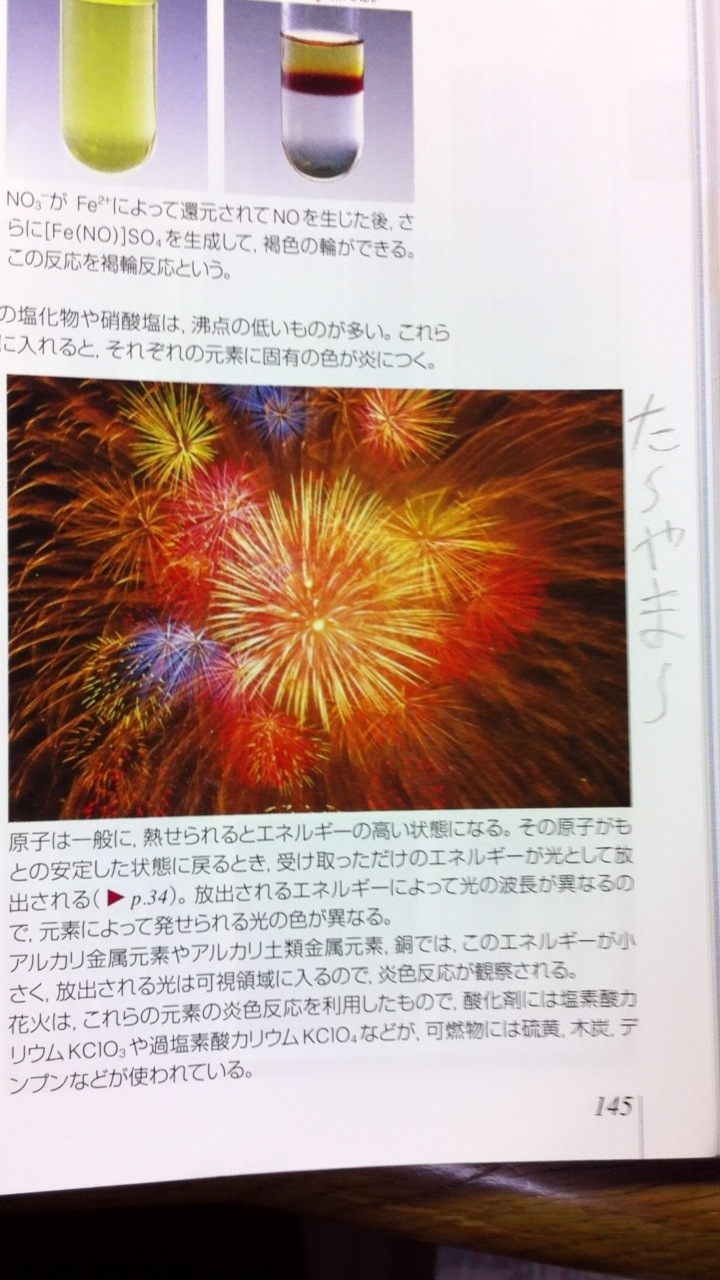 NO₃⁻が Fe²⁺によって還元されてNOを生じた後, さ
らに[Fe(NO)]SO₄を生成して, 褐色の輪ができる。
この反応を褐輪反応という。
の塩化物や硝酸塩は, 沸点の低いものが多い。これら
に入れると, それぞれの元素に固有の色が炎につく。
た〜やま〜
原子は一般に, 熱せられるとエネルギーの高い状態になる。その原子がも
との安定した状態に戻るとき, 受け取っただけのエネルギーが光として放
出される(▶p.34)。放出されるエネルギーによって光の波長が異なるの
で, 元素によって発せられる光の色が異なる。
アルカリ金属元素やアルカリ土類金属元素, 銅では, このエネルギーが小
さく, 放出される光は可視領域に入るので, 炎色反応が観察される。
花火は, これらの元素の炎色反応を利用したもので, 酸化剤には塩素酸カ
リウムKClO₃や過塩素酸カリウムKClO₄などが, 可燃物には硫黄, 木炭, デ
ンプンなどが使われている。
145